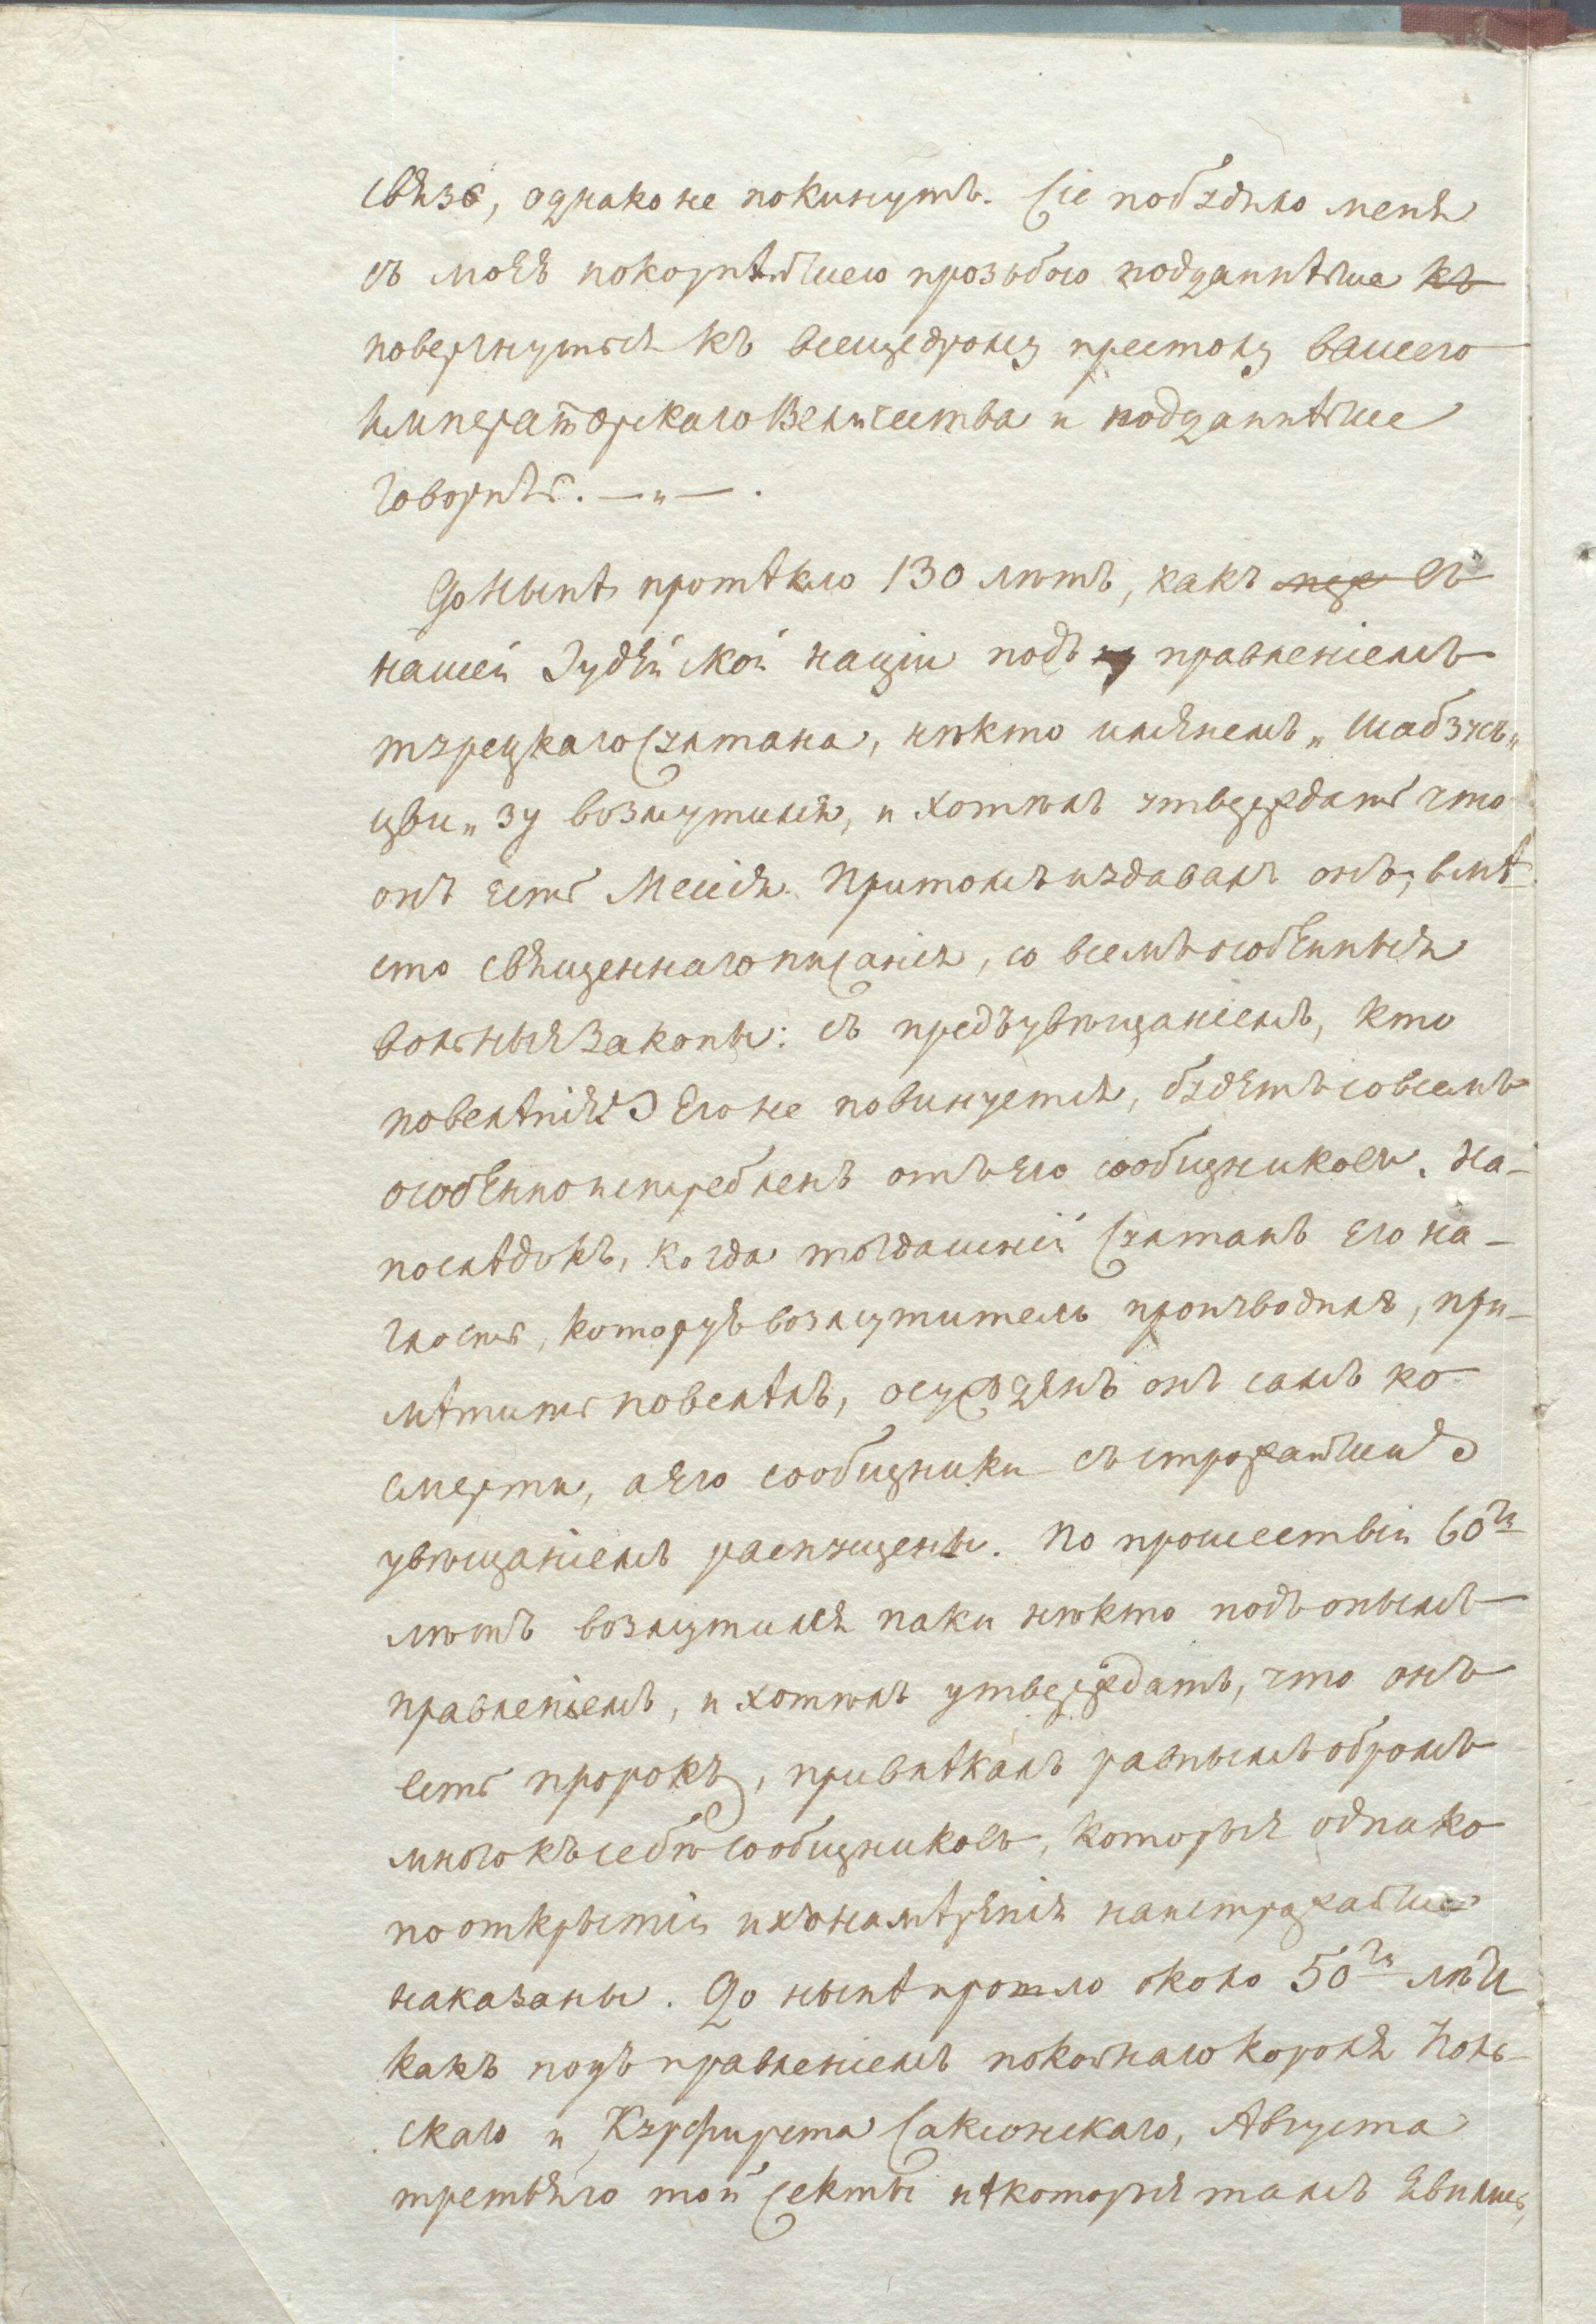 связь, однако не покинутъ. Сіе побудило меня
съ моею покорнѣйшею прозьбою подданнѣйше къ
повергнуться къ всещедрому престолу вашего
Императорскаго Величества и подданнѣйше
говорить. — „ — .
До нынѣ протѣкло 130 лѣтъ, какъ въ
нашей Іудейской націи подъ правленіемъ
турецкаго Султана, нѣкто имянемъ „Шабзуъ„
цви„ зу возмутился, и хотѣлъ утверждать что
онъ есть Мессія. Притомъ издавалъ онъ, вмѣ
сто священнаго писанія, со всемъ особенныя
вольныя Законы: съ предъувѣщаніемъ, кто
повелѣнія его не повинуется, будетъ совсемъ
особенно истребленъ отъ его сообщниковъ. На-
послѣдокъ, когда тогдашній Султанъ его на-
глость, которую возмутитель производилъ, при-
мѣтить повелѣлъ, осужденъ онъ самъ ко
смерти, а его сообщники съ строжайшимъ
увѣщаніемъ распущены. По прошествіи 60ти
лѣтъ возмутился паки нѣкто подъ онымъ
правленіемъ, и хотѣлъ утверждать, что онъ
есть пророкъ, привлѣкалъ равнымъ обромъ
много къ себѣ сообщниковъ, которыя однако
по открытіи ихъ намѣренія наистражайше
наказаны. До нынѣ протло около 50ти лѣтъ
какъ подъ правленіемъ покойнаго короля Поль-
скаго и Курфирста Саксонскаго, Августа
третьяго той Секты нѣкоторыя тамъ явились,